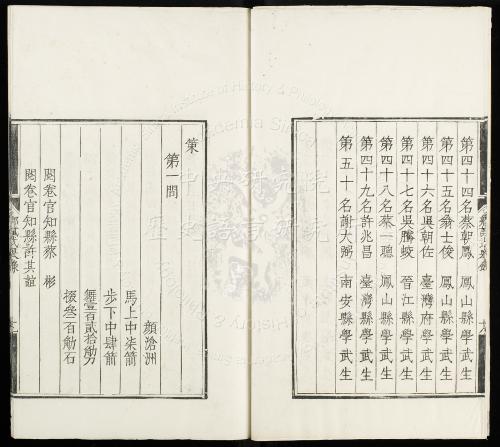 第四十四名蔡朝鳳 鳳山縣學武生
第四十五名翁士俊 鳳山縣學武生
第四十六名吳朝佐 臺灣府學武生
第四十七名吳騰蛟 晉江縣學武生
第四十八名蔡一聰 鳳山縣學武生
第四十九名許兆昌 臺灣縣學武生
第五十名謝大弼 南安縣學武生
策
第一問
顏滄洲
馬上中柒箭
步下中肆箭
舞壹百貳拾觔刀
掇叁百觔石
閱卷官知縣蔡 彬
閱卷官知縣許其誼